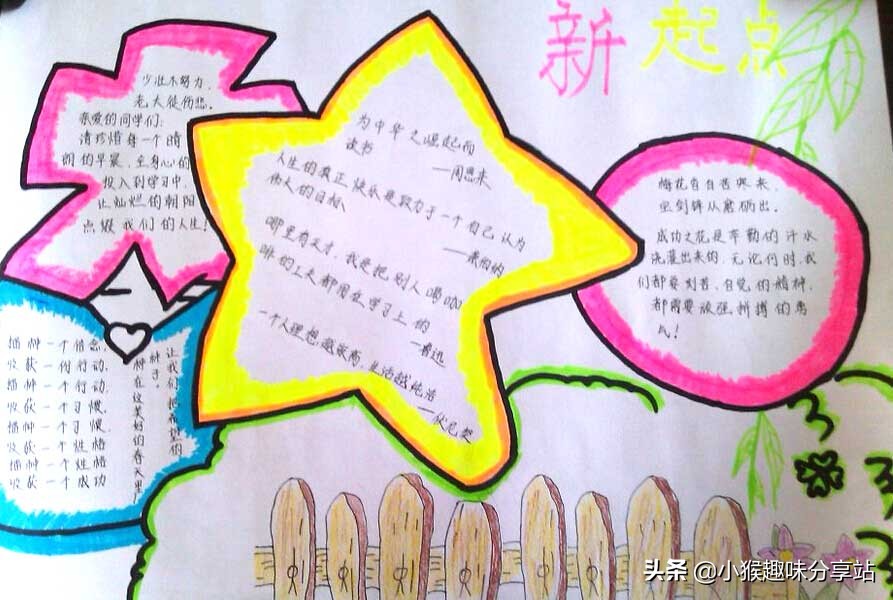 新起点
少壮不努力，
老大徒伤悲。
亲爱的同学们：
请珍惜每一个晴
朗的早晨，全身心的
投入到学习中，
让灿烂的朝阳
点缀我们的人生！
为中华之崛起而
读书
——周恩来
人生的真正快乐是致力于一个自己认为
伟大的目标。
——萧伯纳
哪里有天才，我是把别人喝咖
啡的工夫都用在学习上的
——鲁迅
一个人理想越崇高，生活越纯洁
——伏尼契
梅花香自苦寒来，
宝剑锋从磨砺出。
成功之花是辛勤的汗水
浇灌出来的，无论何时，我
们都要刻苦、自觉的精神，
都需要顽强拼搏的勇
气！
播种一个信念，
收获一份行动，
播种一个行动，
收获一个习惯，
播种一个习惯，
收获一个性格
播种一个性格
收获一个成功
让我们把希望的
种子，
种在这美好的春天里！
头条 @小猴趣味分享站